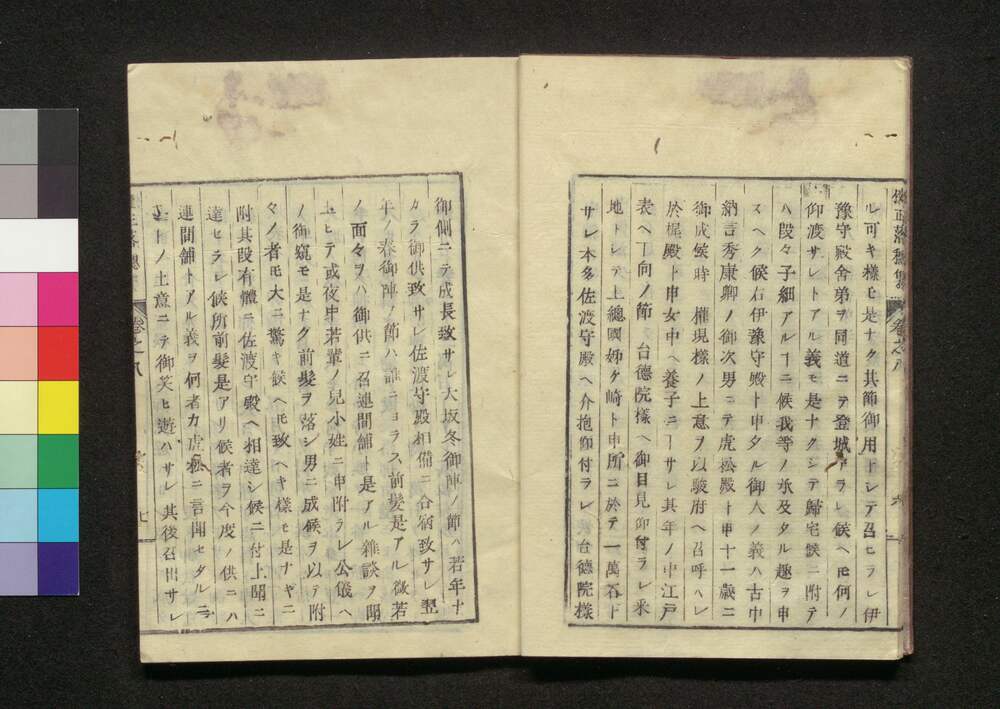 ル可キ樣モ是ナク其節御用トシテ召ヒラレ伊
豫守殿舍弟ヲ同道ニテ登城アラレ候ヘ𪜈何ノ
仰渡サレトアル義モ是ナクシテ歸宅候ニ附テ
ハ段々子細アルヿニ候我等ノ承及タル趣ヲ申
スヘク候右伊豫守殿ト申タル御人ノ義ハ古中
納言秀康卿ノ御次男ニテ虎松殿ト申十一歲ニ
御成候時 權現樣ノ上意ヲ以駿府ヘ召呼ハレ
於梶殿ト申女中ヘ養子ニナサレ其年ノ中江戶
表ヘ下向ノ節 台德院樣ヘ御目見仰付ラレ釆
地トシテ上總國姉ケ崎ト申所ニ於テ一萬石下
サレ本多佐渡守殿ヘ介抱仰付ラレ 台德院樣
卷之八
六
御側ニテ成長致サレ大坂冬御陣ノ節ハ若年十
カラ御供致サレ佐渡守殿相備ニ合宿致サレ翌
年ノ春御陣ノ節ハ誰ニヨラス前髮是アル微若
ノ面々ヲハ御供ニ召連間舗ト是アル雜談ヲ聞
レヒテ或夜中若輩ノ兒小姓ニ申附ラレ公儀ヘ
ノ御窺モ是ナク前髮ヲ落シ男ニ成候ヲ以テ附
々ノ者モ大ニ驚キ候ヘ𪜈致ヘキ樣モ是ナキニ
附其段有體ニ佐渡守殿ヘ相達シ候ニ付上聞ニ
達セラレ候所前髮是アリ候者ヲ今度ノ供ニハ
連間舗トアル義ヲ何者カ虎松ニ言聞セタルニ
トノ上意ニテ御笑ヒ遊ハサレ其後召出サレ
卷之八
七